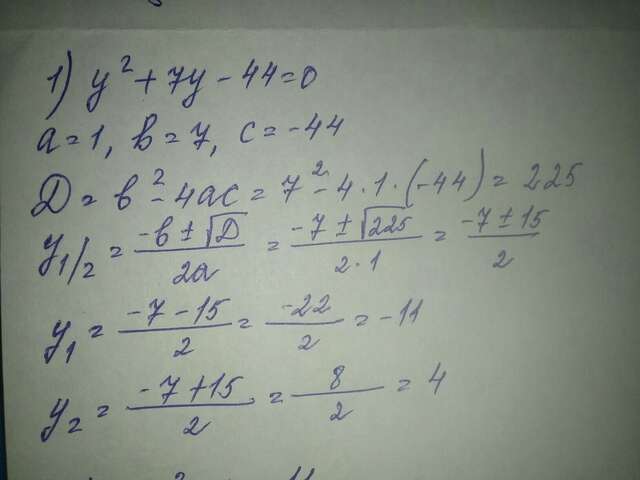 1) y² + 7y - 44 = 0
a = 1, b = 7, c = -44
D = b² - 4ac = 7² - 4 · 1 · (-44) = 225
y₁/₂ = (-b ± √D)/(2a) = (-7 ± √225)/(2 · 1) = (-7 ± 15)/2
y₁ = (-7 - 15)/2 = -22/2 = -11
y₂ = (-7 + 15)/2 = 8/2 = 4